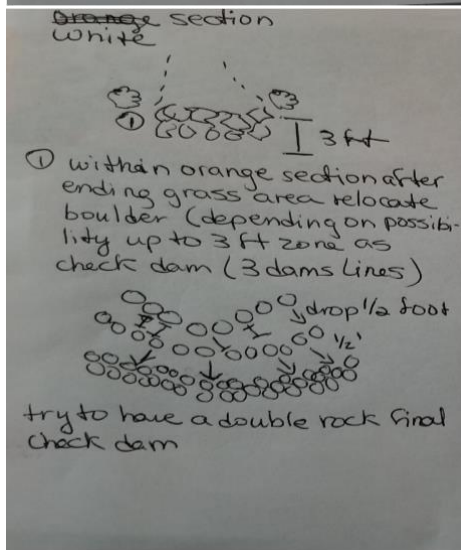 orange section
white
①
3 ft
① within orange section after
ending grass area relocate
boulder (depending on possibi-
lity up to 3 ft zone as
check dam (3 dams lines)
drop 1/2 foot
1/2'
try to have a double rock final
check dam